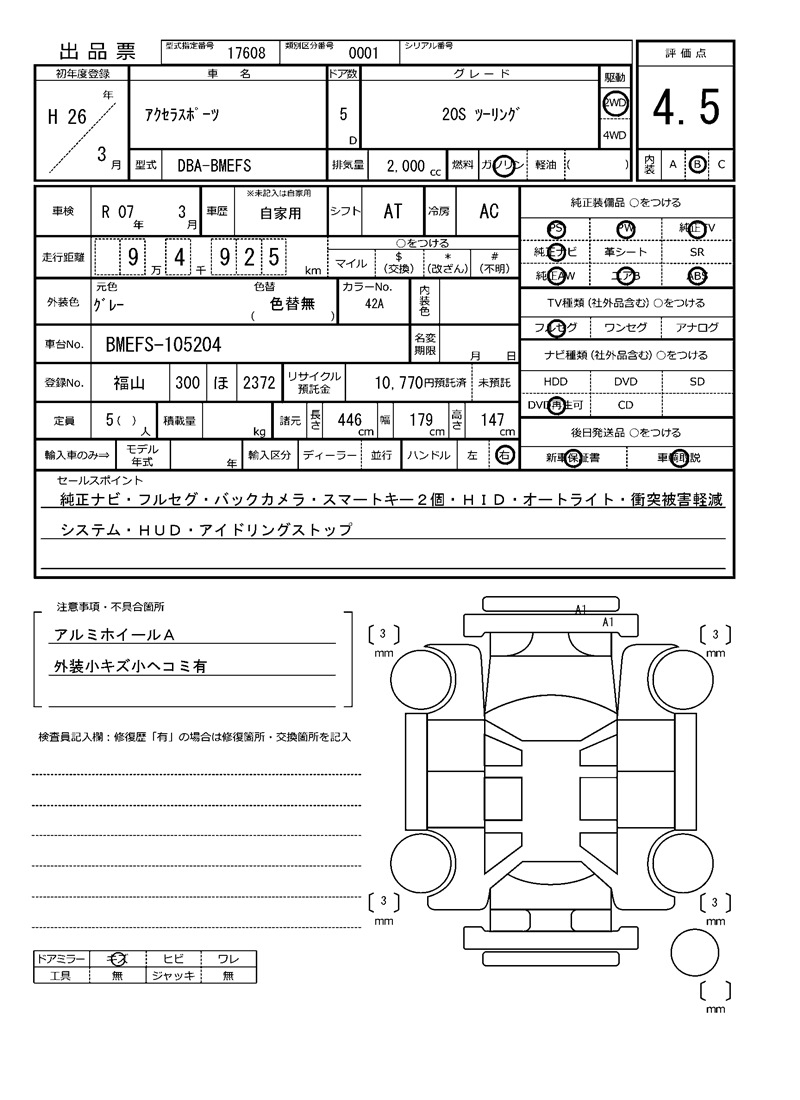 出品票 型式指定番号 17608 類別区分番号 0001 シリアル番号
初年度登録 車 名 ドア数 グレード 駆動 評価点
H 26 年 3 月 アクセラスポーツ 5 D 20S ツーリング 2WD 4WD 4.5
型式 DBA-BMEFS 排気量 2,000 cc 燃料 ガソリン 軽油 ( ) 内装 A B C
車検 R 07 年 3 月 車歴 ※未記入は自家用 自家用 シフト AT 冷房 AC 純正装備品 ○をつける
PS PW 純正TV
走行距離 9 万 4 千 9 2 5 km ○をつける 純正ナビ 革シート SR
マイル $ (交換) * (改ざん) # (不明) 純正AW エアB ABS
外装色 元色 グレー 色替 ( 色替無 ) カラーNo. 42A 内装色 TV種類(社外品含む)○をつける
フルセグ ワンセグ アナログ
車台No. BMEFS-105204 名変期限 月 日 ナビ種類(社外品含む)○をつける
登録No. 福山 300 ほ 2372 リサイクル預託金 10,770円預託済 未預託 HDD DVD SD
DVD再生可 CD
定員 5( ) 人 積載量 kg 諸元 長さ 446 cm 幅 179 cm 高さ 147 cm 後日発送品 ○をつける
輸入車のみ⇒ モデル年式 年 輸入区分 ディーラー 並行 ハンドル 左 右 新車保証書 車輌取説
セールスポイント
純正ナビ・フルセグ・バックカメラ・スマートキー2個・HID・オートライト・衝突被害軽減
システム・HUD・アイドリングストップ
注意事項・不具合箇所
アルミホイールA
外装小キズ小ヘコミ有
検査員記入欄:修復歴「有」の場合は修復箇所・交換箇所を記入
A1
A1
3 mm
3 mm
3 mm
3 mm
mm
ドアミラー キズ ヒビ ワレ
工具 無 ジャッキ 無